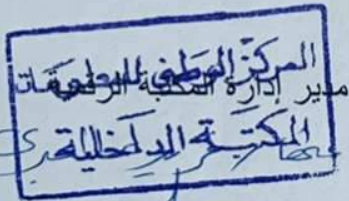 المركز الوطني للمعلومات
مدير إدارة المكتبة الرقمية
المكتبة الداخلية